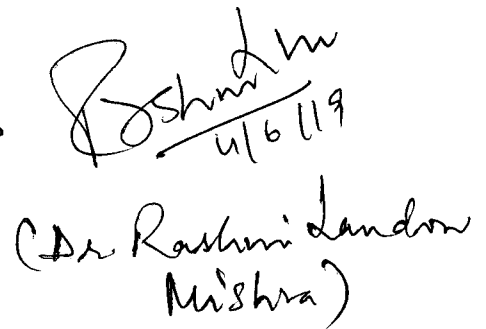 4/6/19
(Dr Rashmi Landon
Mishra)